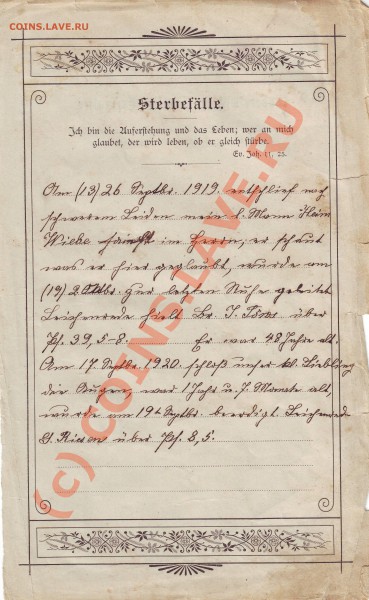 COINS.LAVE.RU
Sterbefälle.
Ich bin die Auferstehung und das Leben; wer an mich
glaubet, der wird leben, ob er gleich stürbe.
Ev. Joh. 11, 25.
Am (13) 26 Septbr. 1919. entschlief nach
schwerem Leiden mein l. Mann Heinr
Wiebe sanft im Herrn; er schaut
was er hier geglaubt, wurde am
(19) 2 Oktbr. zur letzten Ruhe geleitet
Leichenrede hielt Br. J. Töws über
Ps. 39, 5-8. Er war 48 Jahre alt.
Am 17. Septbr. 1920. schloß unser kl. Liebling
die Augen, war 1 Jahr u. 7. Monate alt,
wurde am 19t Septbr. beerdigt Leichenrede
über Ps. 8, 5.
(c) COINS.LAVE.RU